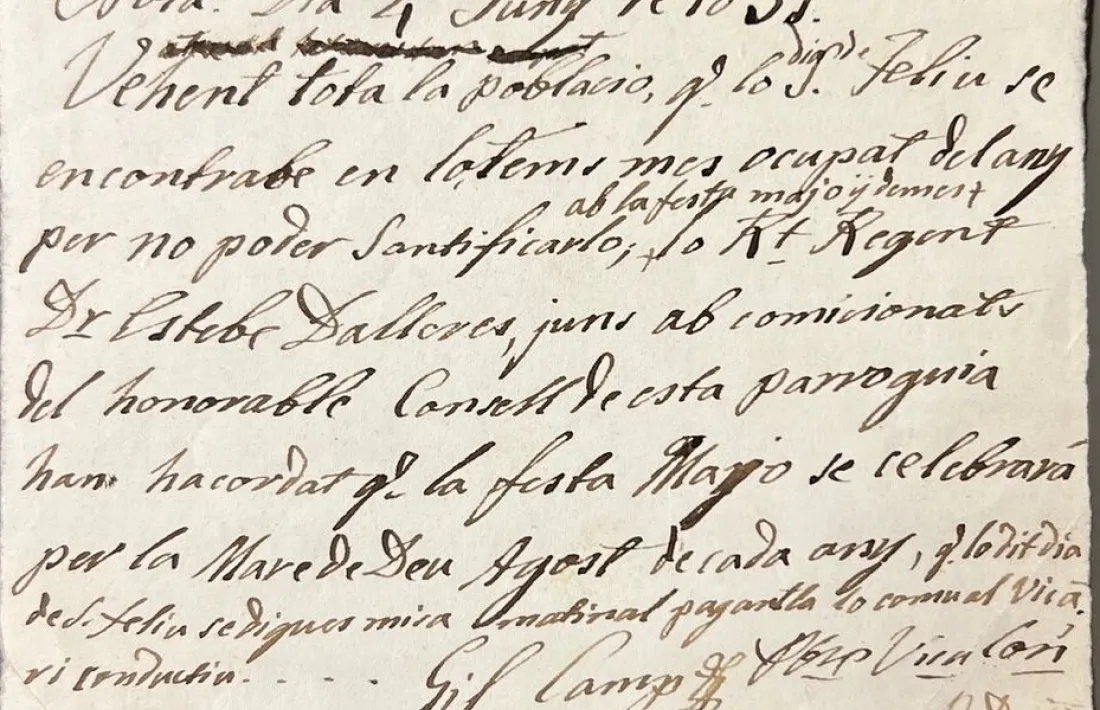 Dia 4 Juny de 1855.
Vehent tota la poblacio, q.e lo dia de S. Feliu se
encontrabe en lo tems mes ocupat del any
ab la festa majo y demes +
per no poder Santificarlo; + lo Rt Regent
Dr Estebe Dalleres, juns ab comicionats
del honorable Consell de esta parroquia
han hacordat q.e la festa Majo se celebrará
per la Mare de Deu Agost de cada any, q.e lo dit dia
de S. Feliu se digues misa matinal pagantla lo comu al Vica
ri conductiu. . . . .
Gil Camp Pbre Vica Con